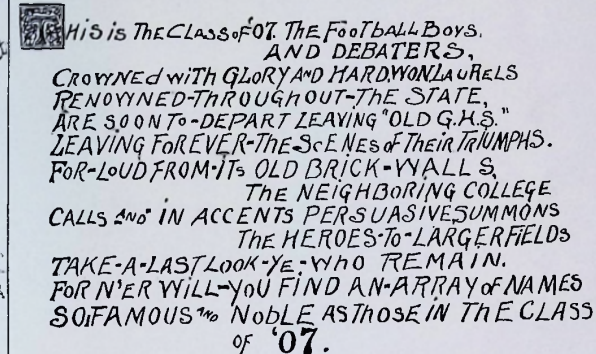 THis is THE CLASS OF '07. THE FOOTBALL BOYS,
AND DEBATERS,
CROWNED WITH GLORY AND HARD.WON LAURELS
RENOWNED-THROUGHOUT-THE STATE,
ARE SOON TO-DEPART LEAVING "OLD G.H.S."
LEAVING FOREVER-THE SCENES OF THEIR TRIUMPHS.
FOR-LOUD FROM-ITS OLD BRICK-WALLS,
THE NEIGHBORING COLLEGE
CALLS AND IN ACCENTS PERSUASIVE SUMMONS
THE HEROES-TO-LARGER FIELDS
TAKE-A-LAST LOOK-YE-WHO REMAIN.
FOR N'ER WILL-YOU FIND AN-ARRAY OF NAMES
SO FAMOUS AND NOBLE AS THOSE IN THE CLASS
OF '07.